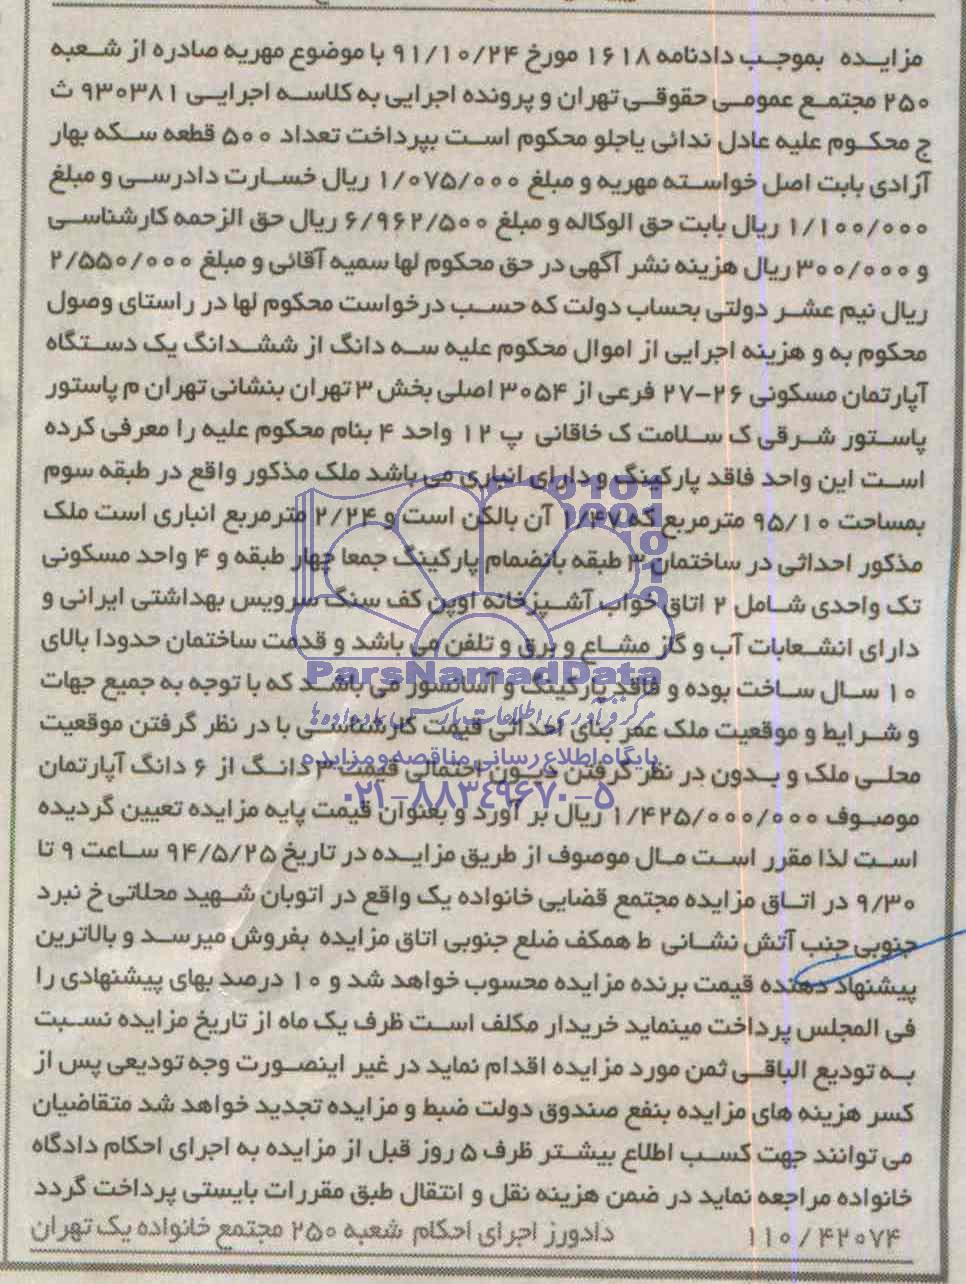 مزایده بموجب دادنامه ۱۶۱۸ مورخ ۹۱/۱۰/۲۴ با موضوع مهریه صادره از شعبه
۲۵۰ مجتمع عمومی حقوقی تهران و پرونده اجرایی به کلاسه اجرایی ۹۳۰۳۸۱ ث
ج محکوم علیه عادل ندائی یاجلو محکوم است بپرداخت تعداد ۵۰۰ قطعه سکه بهار
آزادی بابت اصل خواسته مهریه و مبلغ ۱/۰۷۵/۰۰۰ ریال خسارت دادرسی و مبلغ
۱/۱۰۰/۰۰۰ ریال بابت حق الوکاله و مبلغ ۶/۹۶۲/۵۰۰ ریال حق الزحمه کارشناسی
و ۳۰۰/۰۰۰ ریال هزینه نشر آگهی در حق محکوم لها سمیه آقائی و مبلغ ۲/۵۵۰/۰۰۰
ریال نیم عشر دولتی بحساب دولت که حسب درخواست محکوم لها در راستای وصول
محکوم به و هزینه اجرایی از اموال محکوم علیه سه دانگ از ششدانگ یک دستگاه
آپارتمان مسکونی ۲۶-۲۷ فرعی از ۳۰۵۴ اصلی بخش ۳ تهران بنشانی تهران م پاستور
پاستور شرقی ک سلامت ک خاقانی پ ۱۲ واحد ۴ بنام محکوم علیه را معرفی کرده
است این واحد فاقد پارکینگ و دارای انباری می باشد ملک مذکور واقع در طبقه سوم
بمساحت ۹۵/۱۰ مترمربع که ۱/۴۷ آن بالکن است و ۲/۲۴ مترمربع انباری است ملک
مذکور احداثی در ساختمان ۳ طبقه بانضمام پارکینگ جمعا چهار طبقه و ۴ واحد مسکونی
تک واحدی شامل ۲ اتاق خواب آشپزخانه اوپن کف سنگ سرویس بهداشتی ایرانی و
دارای انشعابات آب و گاز مشاع و برق و تلفن می باشد و قدمت ساختمان حدودا بالای
ParsNamadData
۱۰ سال ساخت بوده و فاقد پارکینگ و آسانسور می باشد که با توجه به جمیع جهات
مرکز فرآوری اطلاعات پارس نماد داده ها
و شرایط و موقعیت ملک عمر بنای احداثی قیمت کارشناسی با در نظر گرفتن موقعیت
پایگاه اطلاع رسانی مناقصه و مزایده
محلی ملک و بدون در نظر گرفتن دیون احتمالی قیمت ۳ دانگ از ۶ دانگ آپارتمان
۰۲۱-۸۸۳۴۹۶۷۰-۵
موصوف ۱/۴۲۵/۰۰۰/۰۰۰ ریال بر آورد و بعنوان قیمت پایه مزایده تعیین گردیده
است لذا مقرر است مال موصوف از طریق مزایده در تاریخ ۹۴/۵/۲۵ ساعت ۹ تا
۹/۳۰ در اتاق مزایده مجتمع قضایی خانواده یک واقع در اتوبان شهید محلاتی خ نبرد
جنوبی جنب آتش نشانی ط همکف ضلع جنوبی اتاق مزایده بفروش میرسد و بالاترین
پیشنهاد دهنده قیمت برنده مزایده محسوب خواهد شد و ۱۰ درصد بهای پیشنهادی را
فی المجلس پرداخت مینماید خریدار مکلف است ظرف یک ماه از تاریخ مزایده نسبت
به تودیع الباقی ثمن مورد مزایده اقدام نماید در غیر اینصورت وجه تودیعی پس از
کسر هزینه های مزایده بنفع صندوق دولت ضبط و مزایده تجدید خواهد شد متقاضیان
می توانند جهت کسب اطلاع بیشتر ظرف ۵ روز قبل از مزایده به اجرای احکام دادگاه
خانواده مراجعه نماید در ضمن هزینه نقل و انتقال طبق مقررات بایستی پرداخت گردد
۱۱۰/۴۲۰۷۴ دادورز اجرای احکام شعبه ۲۵۰ مجتمع خانواده یک تهران